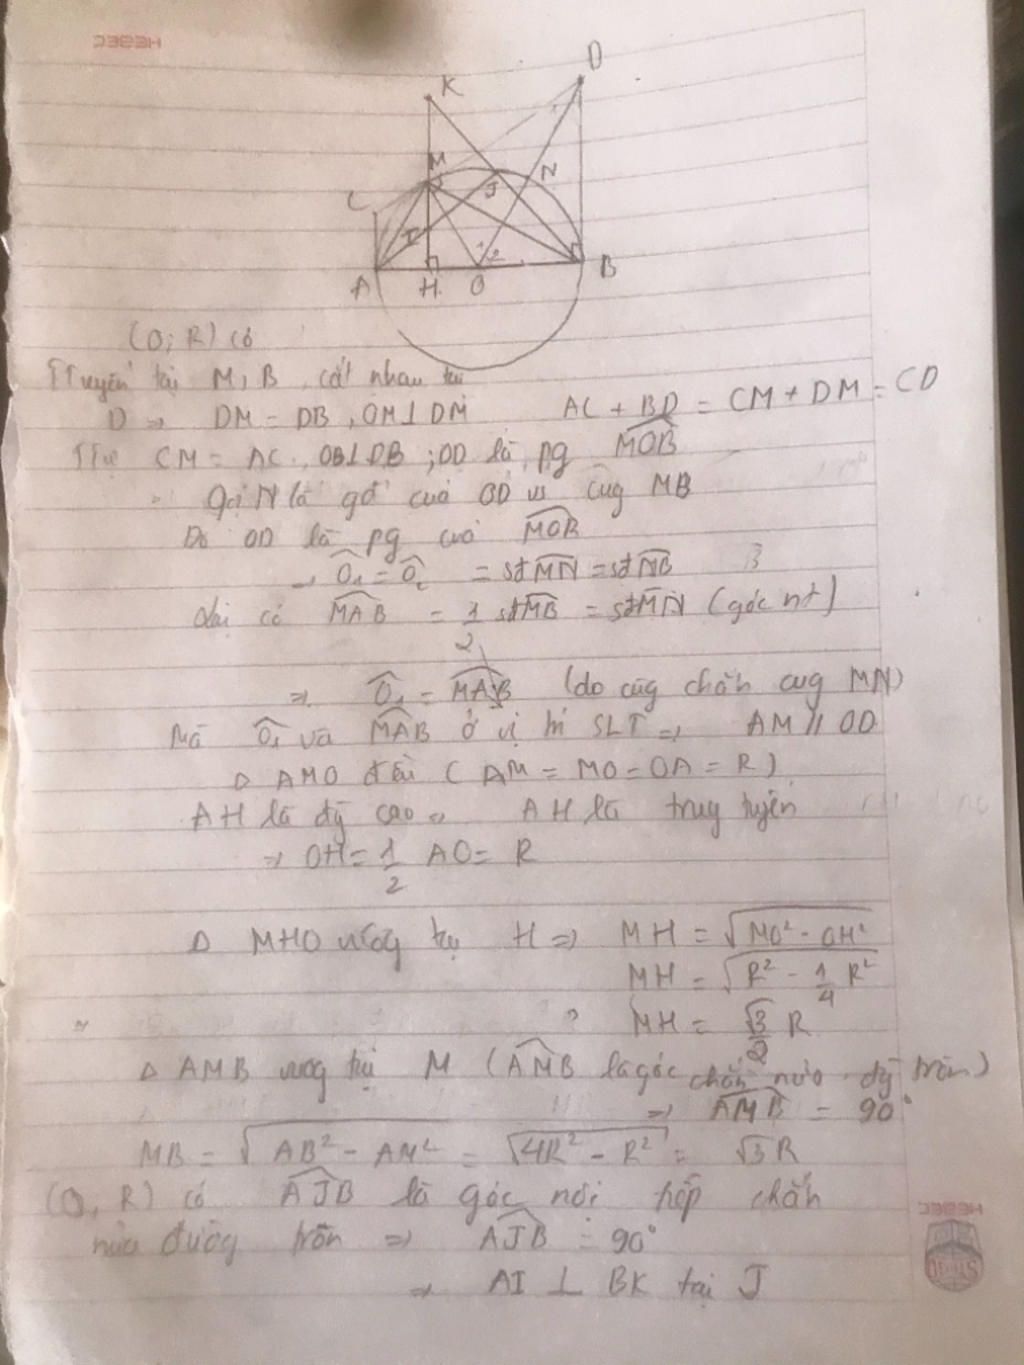 HEBEC
D
K
M
N
J
C
I
1
2
A
H
O
B
(O; R) có
TTuyến tại M, B cắt nhau tại
D ⇒ DM = DB, OM ⊥ DM AC + BD = CM + DM = CD
TTự CM = AC, OB ⊥ DB ; OD là pg \widehat{MOB}
Gọi N là gđ cuả OD vs cug MB
Do OD là pg cuả \widehat{MOB}
→ \widehat{O_1} = \widehat{O_2} = sđ \widehat{MN} = sđ \widehat{NB}
Lại có \widehat{MAB} = \frac{1}{2} sđ \widehat{MB} = sđ \widehat{MN} (góc nt)
⇒ \widehat{O_1} = \widehat{MAB} (do cùg chắn cug MN)
Mà \widehat{O_1} và \widehat{MAB} ở vị trí SLT ⇒ AM // OD
Δ AMO đều ( AM = MO = OA = R )
AH là đg cao ⇒ AH là trug tuyến
⇒ OH = \frac{1}{2} AO = R
Δ MHO vuông tại H ⇒ MH = \sqrt{MO² - OH²}
MH = \sqrt{R² - \frac{1}{4} R²}
MH = \frac{\sqrt{3}}{2} R
Δ AMB vuog tại M (\widehat{AMB} là góc chắn nửa đg tròn)
⇒ \widehat{AMB} = 90°
MB = \sqrt{AB² - AM²} = \sqrt{4R² - R²} = \sqrt{3} R
(O, R) có \widehat{AJB} là góc nội tiếp chắn
nửa đường tròn ⇒ \widehat{AJB} = 90°
⇒ AI ⊥ BK tại J
HEBEC